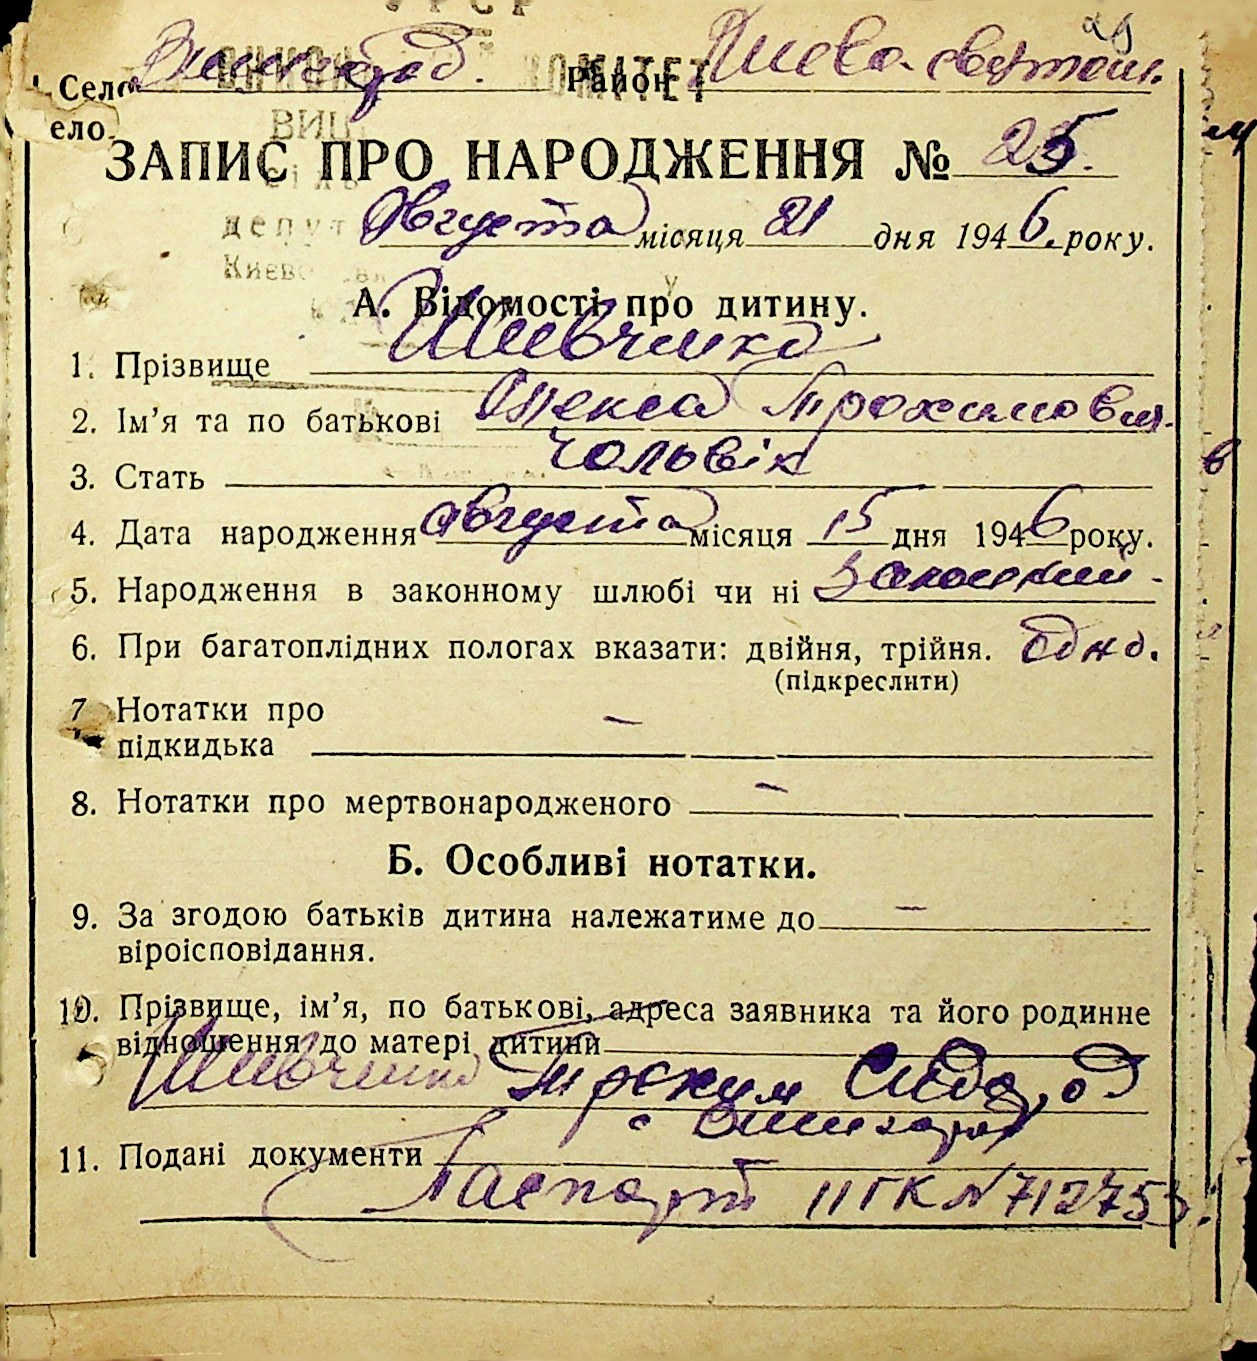 28
УРСР
ВИКОН КОМІТЕТ
Село Вишгород. Район Києво-Святош.
ело.
ВИШ
ЗАПИС ПРО НАРОДЖЕННЯ № 25.
депут
Августа місяця 21 дня 1946. року.
Києво
А. Відомості про дитину.
1. Прізвище Шевченко
2. Ім’я та по батькові Олекса Трохимович
3. Стать чольвік
4. Дата народження августа місяця 15 дня 1946 року.
5. Народження в законному шлюбі чи ні законний
6. При багатоплідних пологах вказати: двійня, трійня. Одно.
(підкреслити)
7 Нотатки про
підкидька —
8. Нотатки про мертвонародженого —
Б. Особливі нотатки.
9. За згодою батьків дитина належатиме до —
віроісповідання.
10. Прізвище, ім’я, по батькові, адреса заявника та його родинне
відношення до матері дитини
Шевченко Трохим
с Вишгород
11. Подані документи
Паспорт ІІГК № 712753.